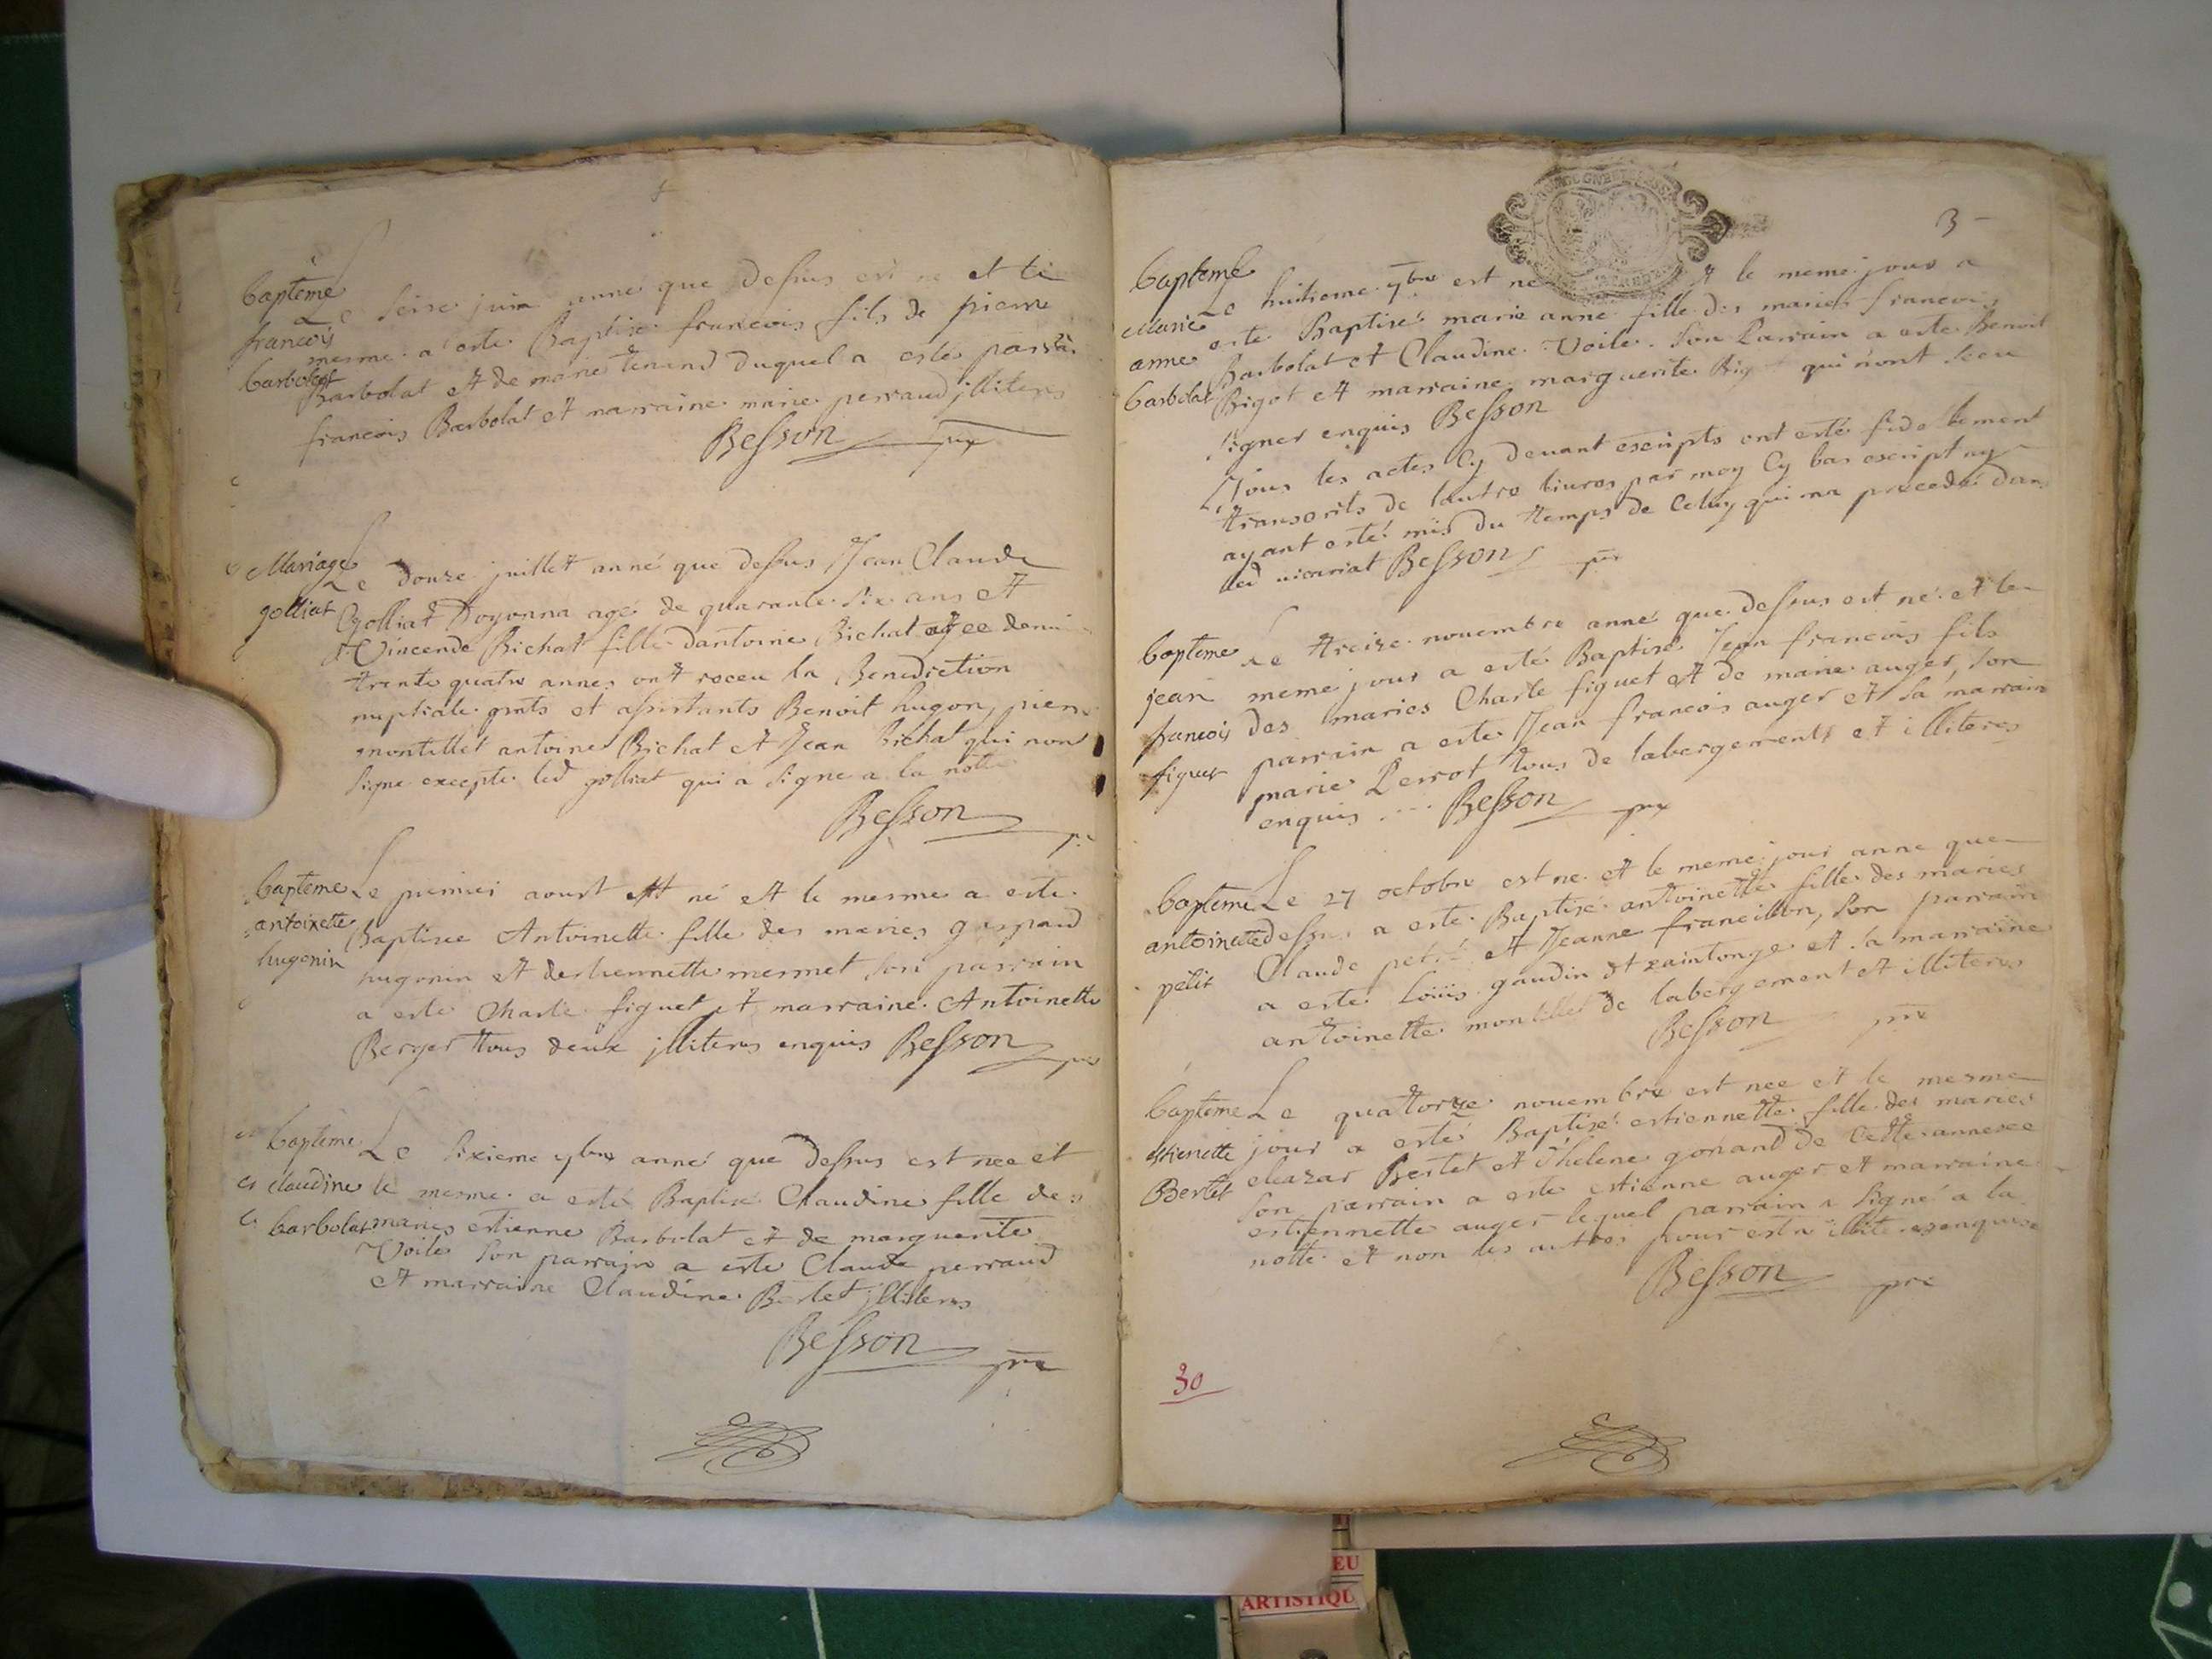 baptême
francois
barbolat
Le seise juin anné que dessus est né et le
mesme a esté Baptisé francois fils de pierre
Barbolat et de marie tenand duquel a esté parrain
francois Barbolat et marraine marie perraud illiteres
Besson pre
Mariage
golliat
Le douze juillet anné que dessus Jean Claude
Golliat Doyonna agé de quarante six ans et
Vincende Bichat fille dantoine Bichat agee denui
trente quatre annes ont receu la Benediction
nuptiale pnts et assistants Benoit hugon, pierre
montillet antoine Bichat et Jean Bichat qui nont
signe excepte led golliat qui a signe a la notte
Besson
baptême
antoinette
hugonin
Le premier aoust est né et le mesme a esté
Baptisee Antoinette fille des maries gaspard
hugonin et destiennette mermet son parrain
a esté Charle figuet et marraine Antoinette
Berger tous deux illiteres enquis Besson pre
baptême
claudine
barbolat
Le sixieme 7bre anné que dessus est nee et
le mesme a esté Baptisé Claudine fille des
maries estienne Barbolat et de marguerite
Voile son parrain a esté Claude perraud
et marraine Claudine Bertet illiteres
Besson pre
3
baptême
Marie
anne
barbolat
Le huitieme 7bre est né et le meme jour a
esté Baptisé marie anne fille des maries francois
Barbolat et Claudine Voile son Parrain a esté Benoit
Bigot et marraine marguerite qui n'ont sceu
signer enquis Besson
Tous les actes Cy devant escripts ont esté fidellement
transcrits de lautre livres par moy Cy bas escript ny
ayant esté mis du temps de Celuy qui ma precedé dans
led vicariat Besson pre
baptême
jean
francois
figuet
Le treize novembre anné que dessus est né et le
meme jour a esté Baptisé Jean francois fils
des maries Charle figuet et de marie auger, son
parrain a esté Jean francois auger et sa marraine
marie Perrot tous de labergements et illiteres
enquis Besson pre
baptême
antoinette
petit
Le 27 octobre est né et le meme jour anné que
dessus a esté Baptisé antoinette fille des maries
Claude petit et Jeanne francillon, son parrain
a esté Loüis gaudin dt xaintonge et sa marraine
antoinette montillet de labergement et illiteres
Besson pre
baptême
estienette
Bertet
Le quattorze novembre est nee et le mesme
jour a esté Baptisé estiennette fille des maries
eleazar Bertet et d'helene gonand de Cette annexe
son parrain a esté estienne auger et marraine
estiennette auger lequel parrain a signé a la
notte et non les autres pour estre illiteres enquis
Besson pre
30
EU
ARTISTIQU